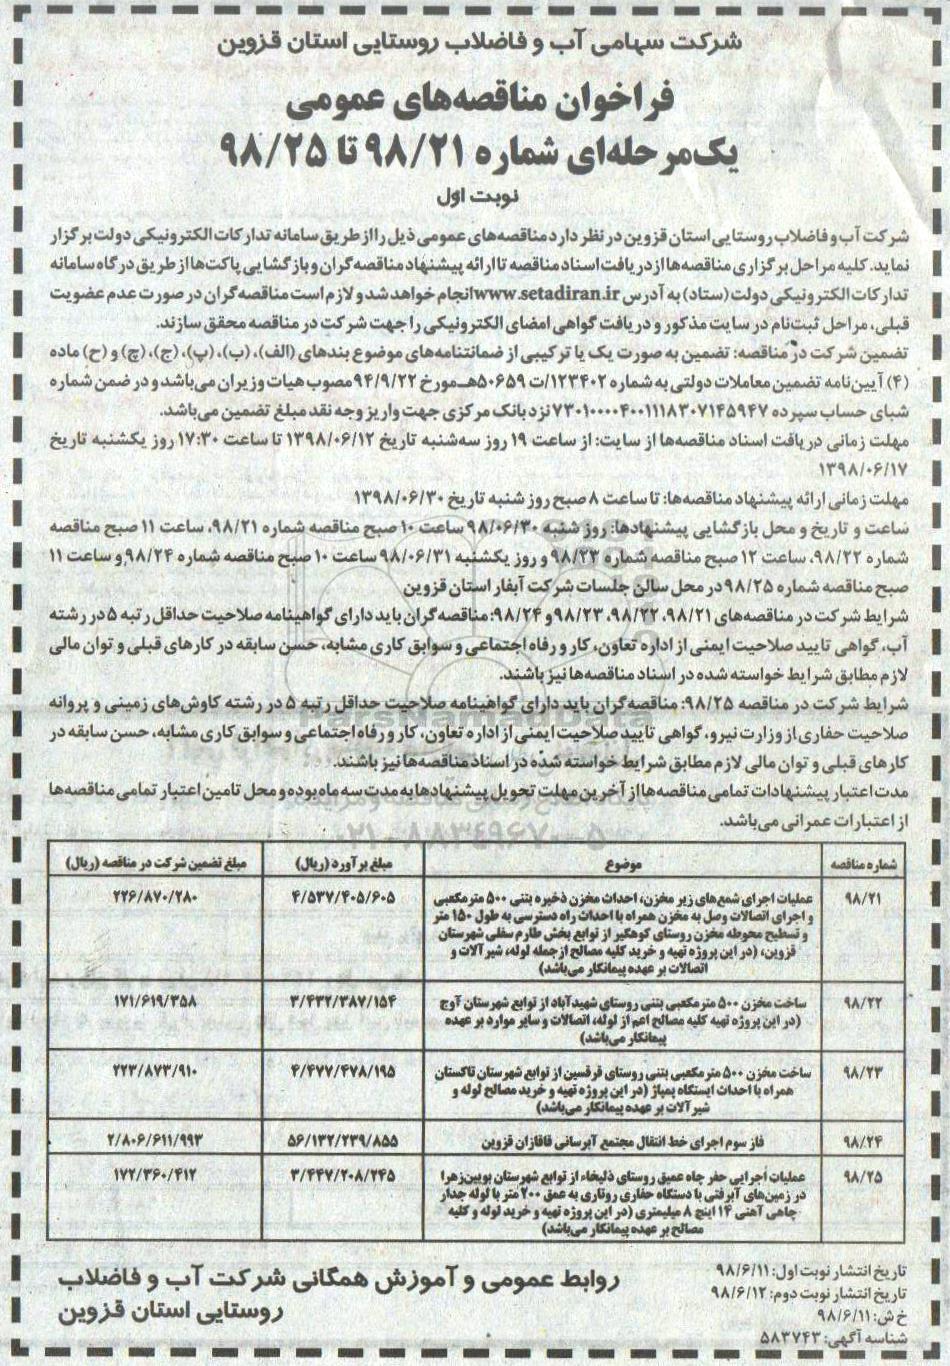 شرکت سهامی آب و فاضلاب روستایی استان قزوین
فراخوان مناقصه‌های عمومی
یک‌مرحله‌ای شماره ۹۸/۲۱ تا ۹۸/۲۵
نوبت اول
شرکت آب و فاضلاب روستایی استان قزوین در نظر دارد مناقصه‌های عمومی ذیل را از طریق سامانه تدارکات الکترونیکی دولت برگزار
نماید. کلیه مراحل برگزاری مناقصه‌ها از دریافت اسناد مناقصه تا ارائه پیشنهاد مناقصه‌گران و بازگشایی پاکت‌ها از طریق درگاه سامانه
تدارکات الکترونیکی دولت (ستاد) به آدرس www.setadiran.ir انجام خواهد شد و لازم است مناقصه‌گران در صورت عدم عضویت
قبلی، مراحل ثبت‌نام در سایت مذکور و دریافت گواهی امضای الکترونیکی را جهت شرکت در مناقصه محقق سازند.
تضمین شرکت در مناقصه: تضمین به صورت یک یا ترکیبی از ضمانتنامه‌های موضوع بندهای (الف)، (ب)، (پ)، (ج)، (چ) و (ح) ماده
(۴) آیین‌نامه تضمین معاملات دولتی به شماره ۱۲۳۴۰۲/ت ۵۰۶۵۹هـ مورخ ۹۴/۹/۲۲ مصوب هیات وزیران می‌باشد و در ضمن شماره
شبای حساب سپرده ۷۳۰۱۰۰۰۰۴۰۰۱۱۱۸۳۰۷۱۴۵۹۴۷ نزد بانک مرکزی جهت واریز وجه نقد مبلغ تضمین می‌باشد.
مهلت زمانی دریافت اسناد مناقصه‌ها از سایت: از ساعت ۱۹ روز سه‌شنبه تاریخ ۱۳۹۸/۰۶/۱۲ تا ساعت ۱۷:۳۰ روز یکشنبه تاریخ
۱۳۹۸/۰۶/۱۷
مهلت زمانی ارائه پیشنهاد مناقصه‌ها: تا ساعت ۸ صبح روز شنبه تاریخ ۱۳۹۸/۰۶/۳۰
ساعت و تاریخ و محل بازگشایی پیشنهادها: روز شنبه ۹۸/۰۶/۳۰ ساعت ۱۰ صبح مناقصه شماره ۹۸/۲۱، ساعت ۱۱ صبح مناقصه
شماره ۹۸/۲۲، ساعت ۱۲ صبح مناقصه شماره ۹۸/۲۳ و روز یکشنبه ۹۸/۰۶/۳۱ ساعت ۱۰ صبح مناقصه شماره ۹۸/۲۴ و ساعت ۱۱
صبح مناقصه شماره ۹۸/۲۵ در محل سالن جلسات شرکت آبفار استان قزوین
شرایط شرکت در مناقصه‌های ۹۸/۲۱، ۹۸/۲۲، ۹۸/۲۳ و ۹۸/۲۴: مناقصه‌گران باید دارای گواهینامه صلاحیت حداقل رتبه ۵ در رشته
آب، گواهی تایید صلاحیت ایمنی از اداره تعاون، کار و رفاه اجتماعی و سوابق کاری مشابه، حسن سابقه در کارهای قبلی و توان مالی
لازم مطابق شرایط خواسته شده در اسناد مناقصه‌ها نیز باشند.
شرایط شرکت در مناقصه ۹۸/۲۵: مناقصه‌گران باید دارای گواهینامه صلاحیت حداقل رتبه ۵ در رشته کاوش‌های زمینی و پروانه
صلاحیت حفاری از وزارت نیرو، گواهی تایید صلاحیت ایمنی از اداره تعاون، کار و رفاه اجتماعی و سوابق کاری مشابه، حسن سابقه در
کارهای قبلی و توان مالی لازم مطابق شرایط خواسته شده در اسناد مناقصه‌ها نیز باشند.
مدت اعتبار پیشنهادات تمامی مناقصه‌ها از آخرین مهلت تحویل پیشنهادها به مدت سه ماه بوده و محل تامین اعتبار تمامی مناقصه‌ها
از اعتبارات عمرانی می‌باشد.
ParsNamadData
۰۲۱-۸۸۳۴۹۶۷۰-۵
شماره مناقصه موضوع مبلغ برآورد (ریال) مبلغ تضمین شرکت در مناقصه (ریال)
۹۸/۲۱ عملیات اجرای شمع‌های زیر مخزن، احداث مخزن ذخیره بتنی ۵۰۰ مترمکعبی ۴/۵۳۷/۴۰۵/۶۰۵ ۲۲۶/۸۷۰/۲۸۰
و اجرای اتصالات وصل به مخزن همراه با احداث راه دسترسی به طول ۱۵۰ متر
و تسطیح محوطه مخزن روستای کوهگیر از توابع بخش طارم سفلی شهرستان
قزوین، (در این پروژه تهیه و خرید کلیه مصالح ازجمله لوله، شیرآلات و
اتصالات بر عهده پیمانکار می‌باشد)
۹۸/۲۲ ساخت مخزن ۵۰۰ مترمکعبی بتنی روستای شهیدآباد از توابع شهرستان آوج ۳/۴۳۲/۳۸۷/۱۵۴ ۱۷۱/۶۱۹/۳۵۸
(در این پروژه تهیه کلیه مصالح اعم از لوله، اتصالات و سایر موارد بر عهده
پیمانکار می‌باشد)
۹۸/۲۳ ساخت مخزن ۵۰۰ مترمکعبی بتنی روستای قرقسین از توابع شهرستان تاکستان ۴/۴۷۷/۴۷۸/۱۹۵ ۲۲۳/۸۷۳/۹۱۰
همراه با احداث ایستگاه پمپاژ (در این پروژه تهیه و خرید مصالح لوله و
شیرآلات بر عهده پیمانکار می‌باشد)
۹۸/۲۴ فاز سوم اجرای خط انتقال مجتمع آبرسانی قاقازان قزوین ۵۶/۱۳۲/۲۳۹/۸۵۵ ۲/۸۰۶/۶۱۱/۹۹۳
۹۸/۲۵ عملیات اجرایی حفر چاه عمیق روستای ذلیخاء از توابع شهرستان بویین‌زهرا ۳/۴۴۷/۲۰۸/۲۴۵ ۱۷۲/۳۶۰/۴۱۲
در زمین‌های آبرفتی با دستگاه حفاری روتاری به عمق ۲۰۰ متر با لوله جدار
چاهی آهنی ۱۴ اینچ ۸ میلیمتری (در این پروژه تهیه و خرید لوله و کلیه
مصالح بر عهده پیمانکار می‌باشد)
تاریخ انتشار نوبت اول: ۹۸/۶/۱۱
تاریخ انتشار نوبت دوم: ۹۸/۶/۱۲
خ ش: ۹۸/۶/۱۱
شناسه آگهی: ۵۸۳۷۴۳
روابط عمومی و آموزش همگانی شرکت آب و فاضلاب
روستایی استان قزوین